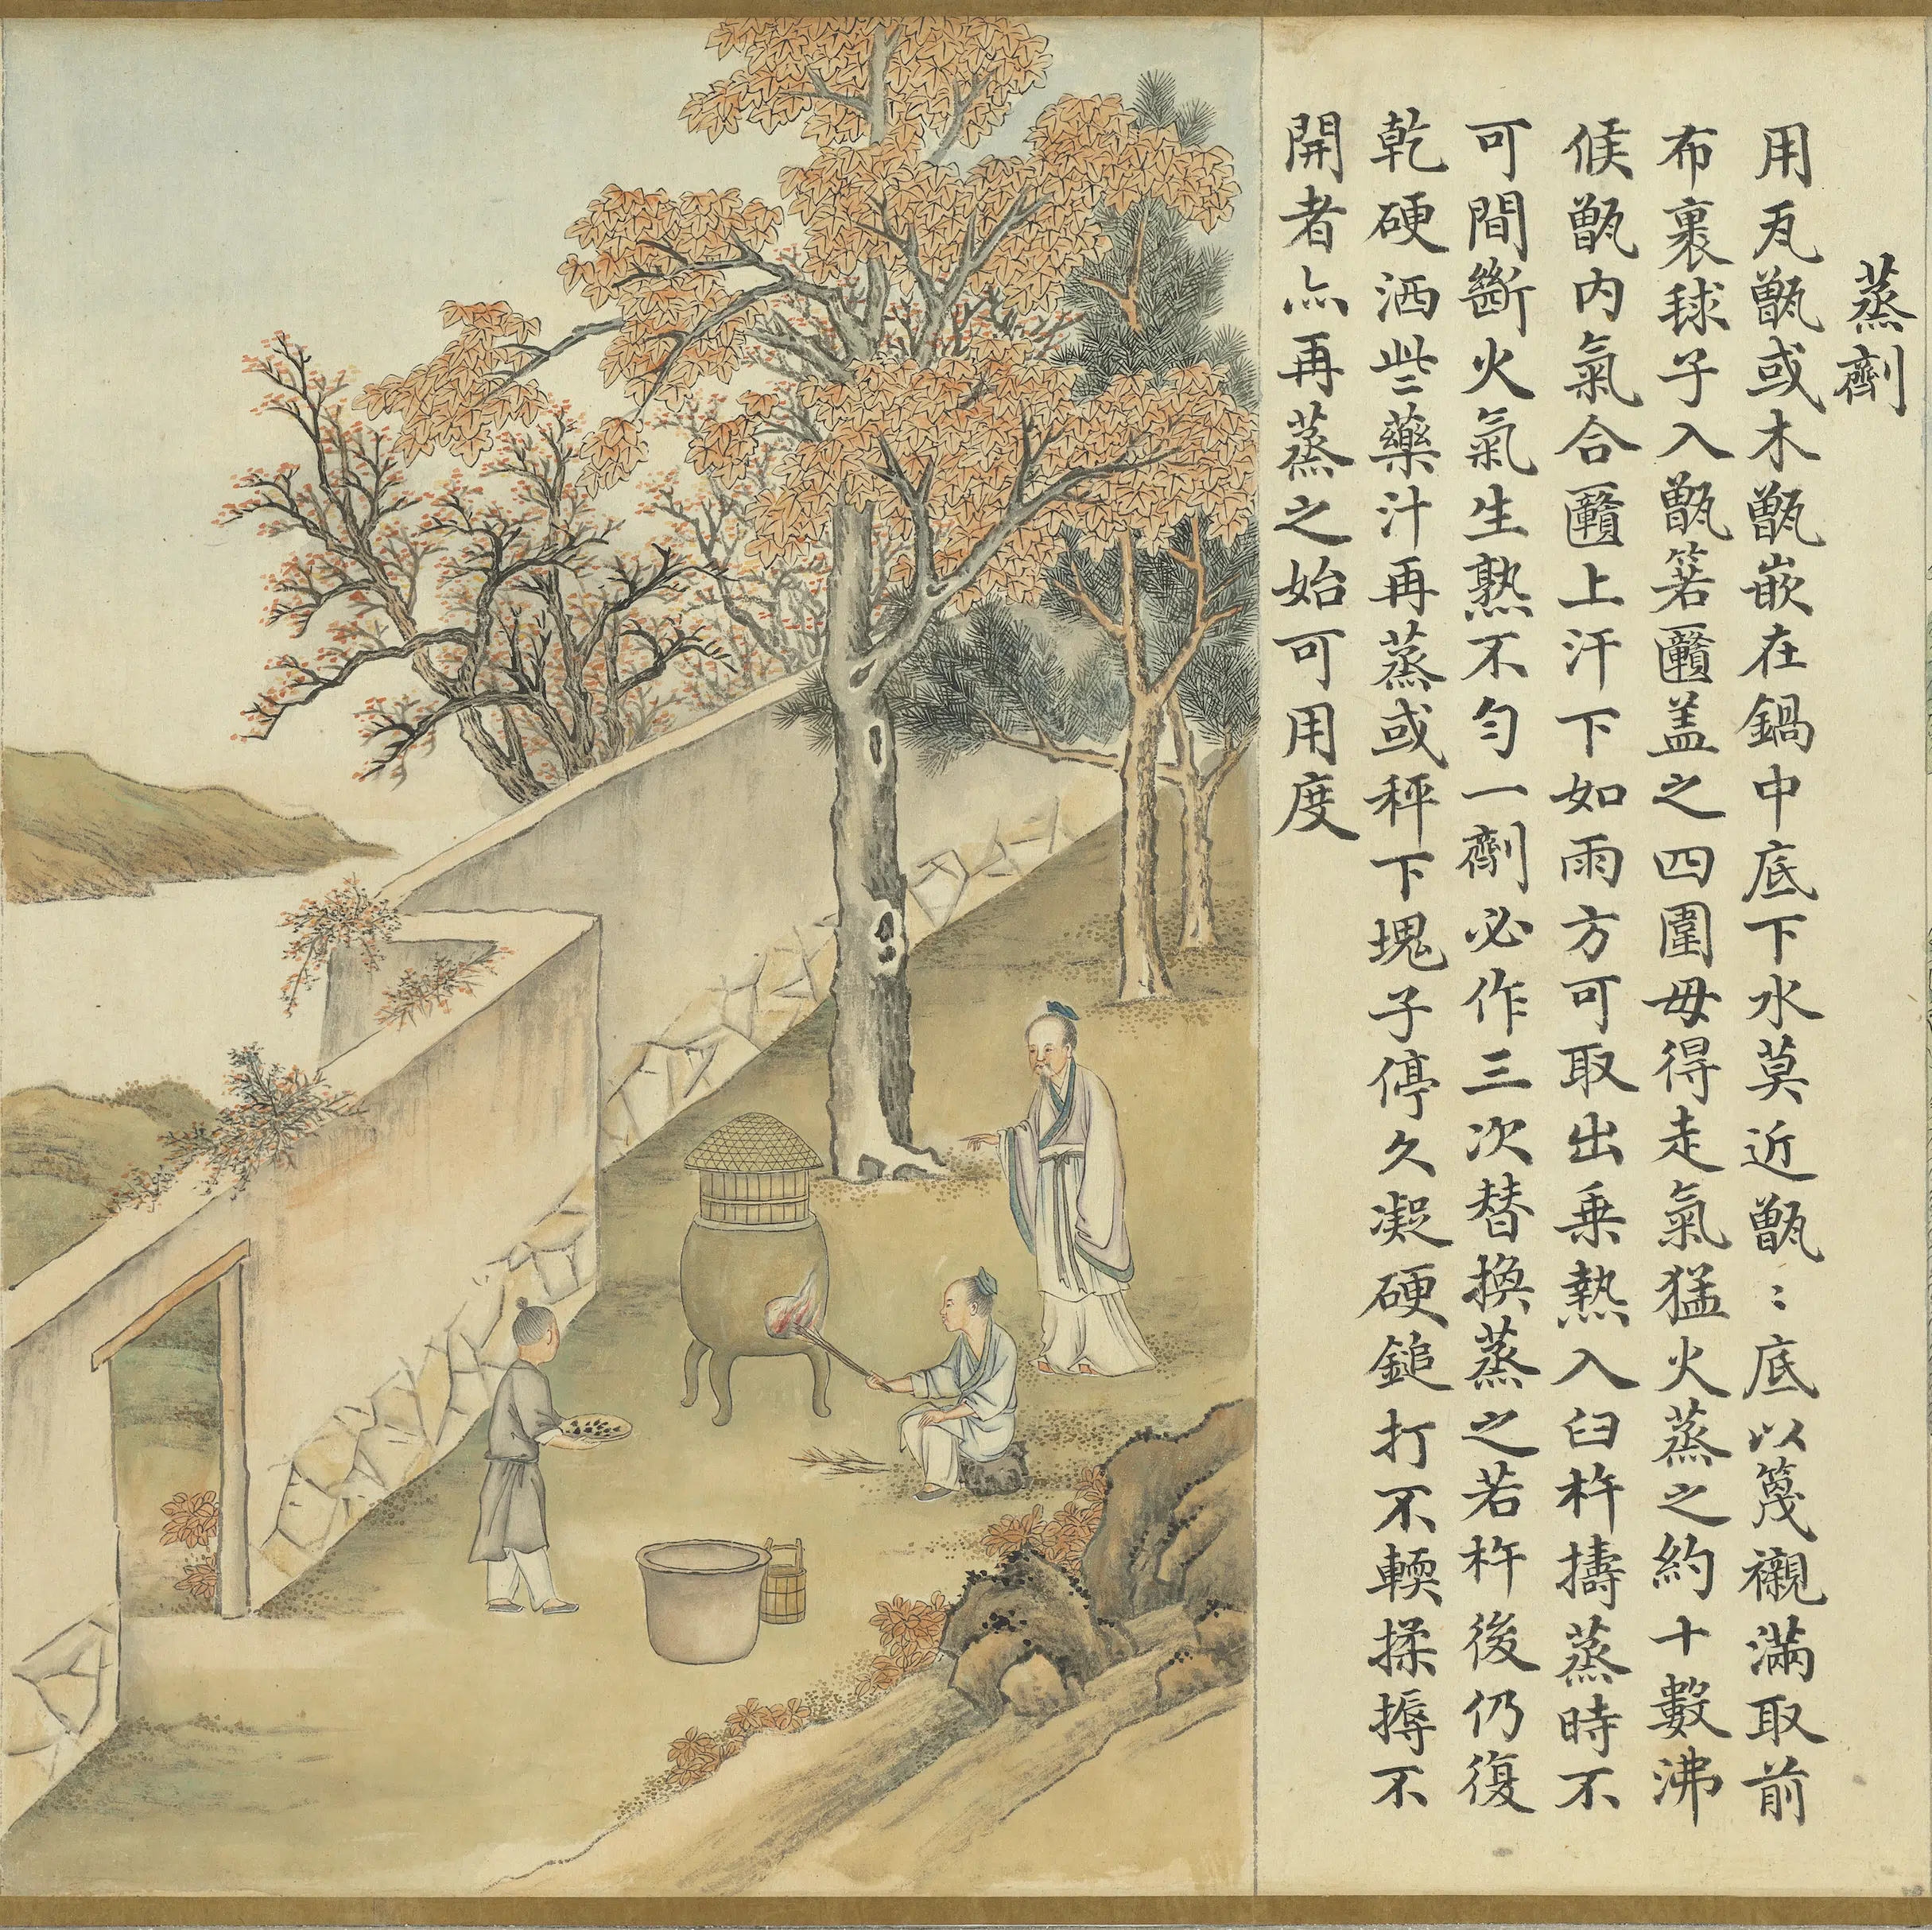 蒸劑
用瓦甑或木甑嵌在鍋中底下水莫近甑〻底以篾襯滿取前
布裹毬子入甑箬匷盖之四圍毋得走氣猛火蒸之約十數沸
候甑內氣合匷上汗下如雨方可取出乗熱入臼杵擣蒸時不
可間斷火氣生熟不匀一劑必作三次替換蒸之若杵後仍復
乾硬洒些藥汁再蒸或秤下塊子停久凝硬鎚打不輭揉搙不
開者亦再蒸之始可用度